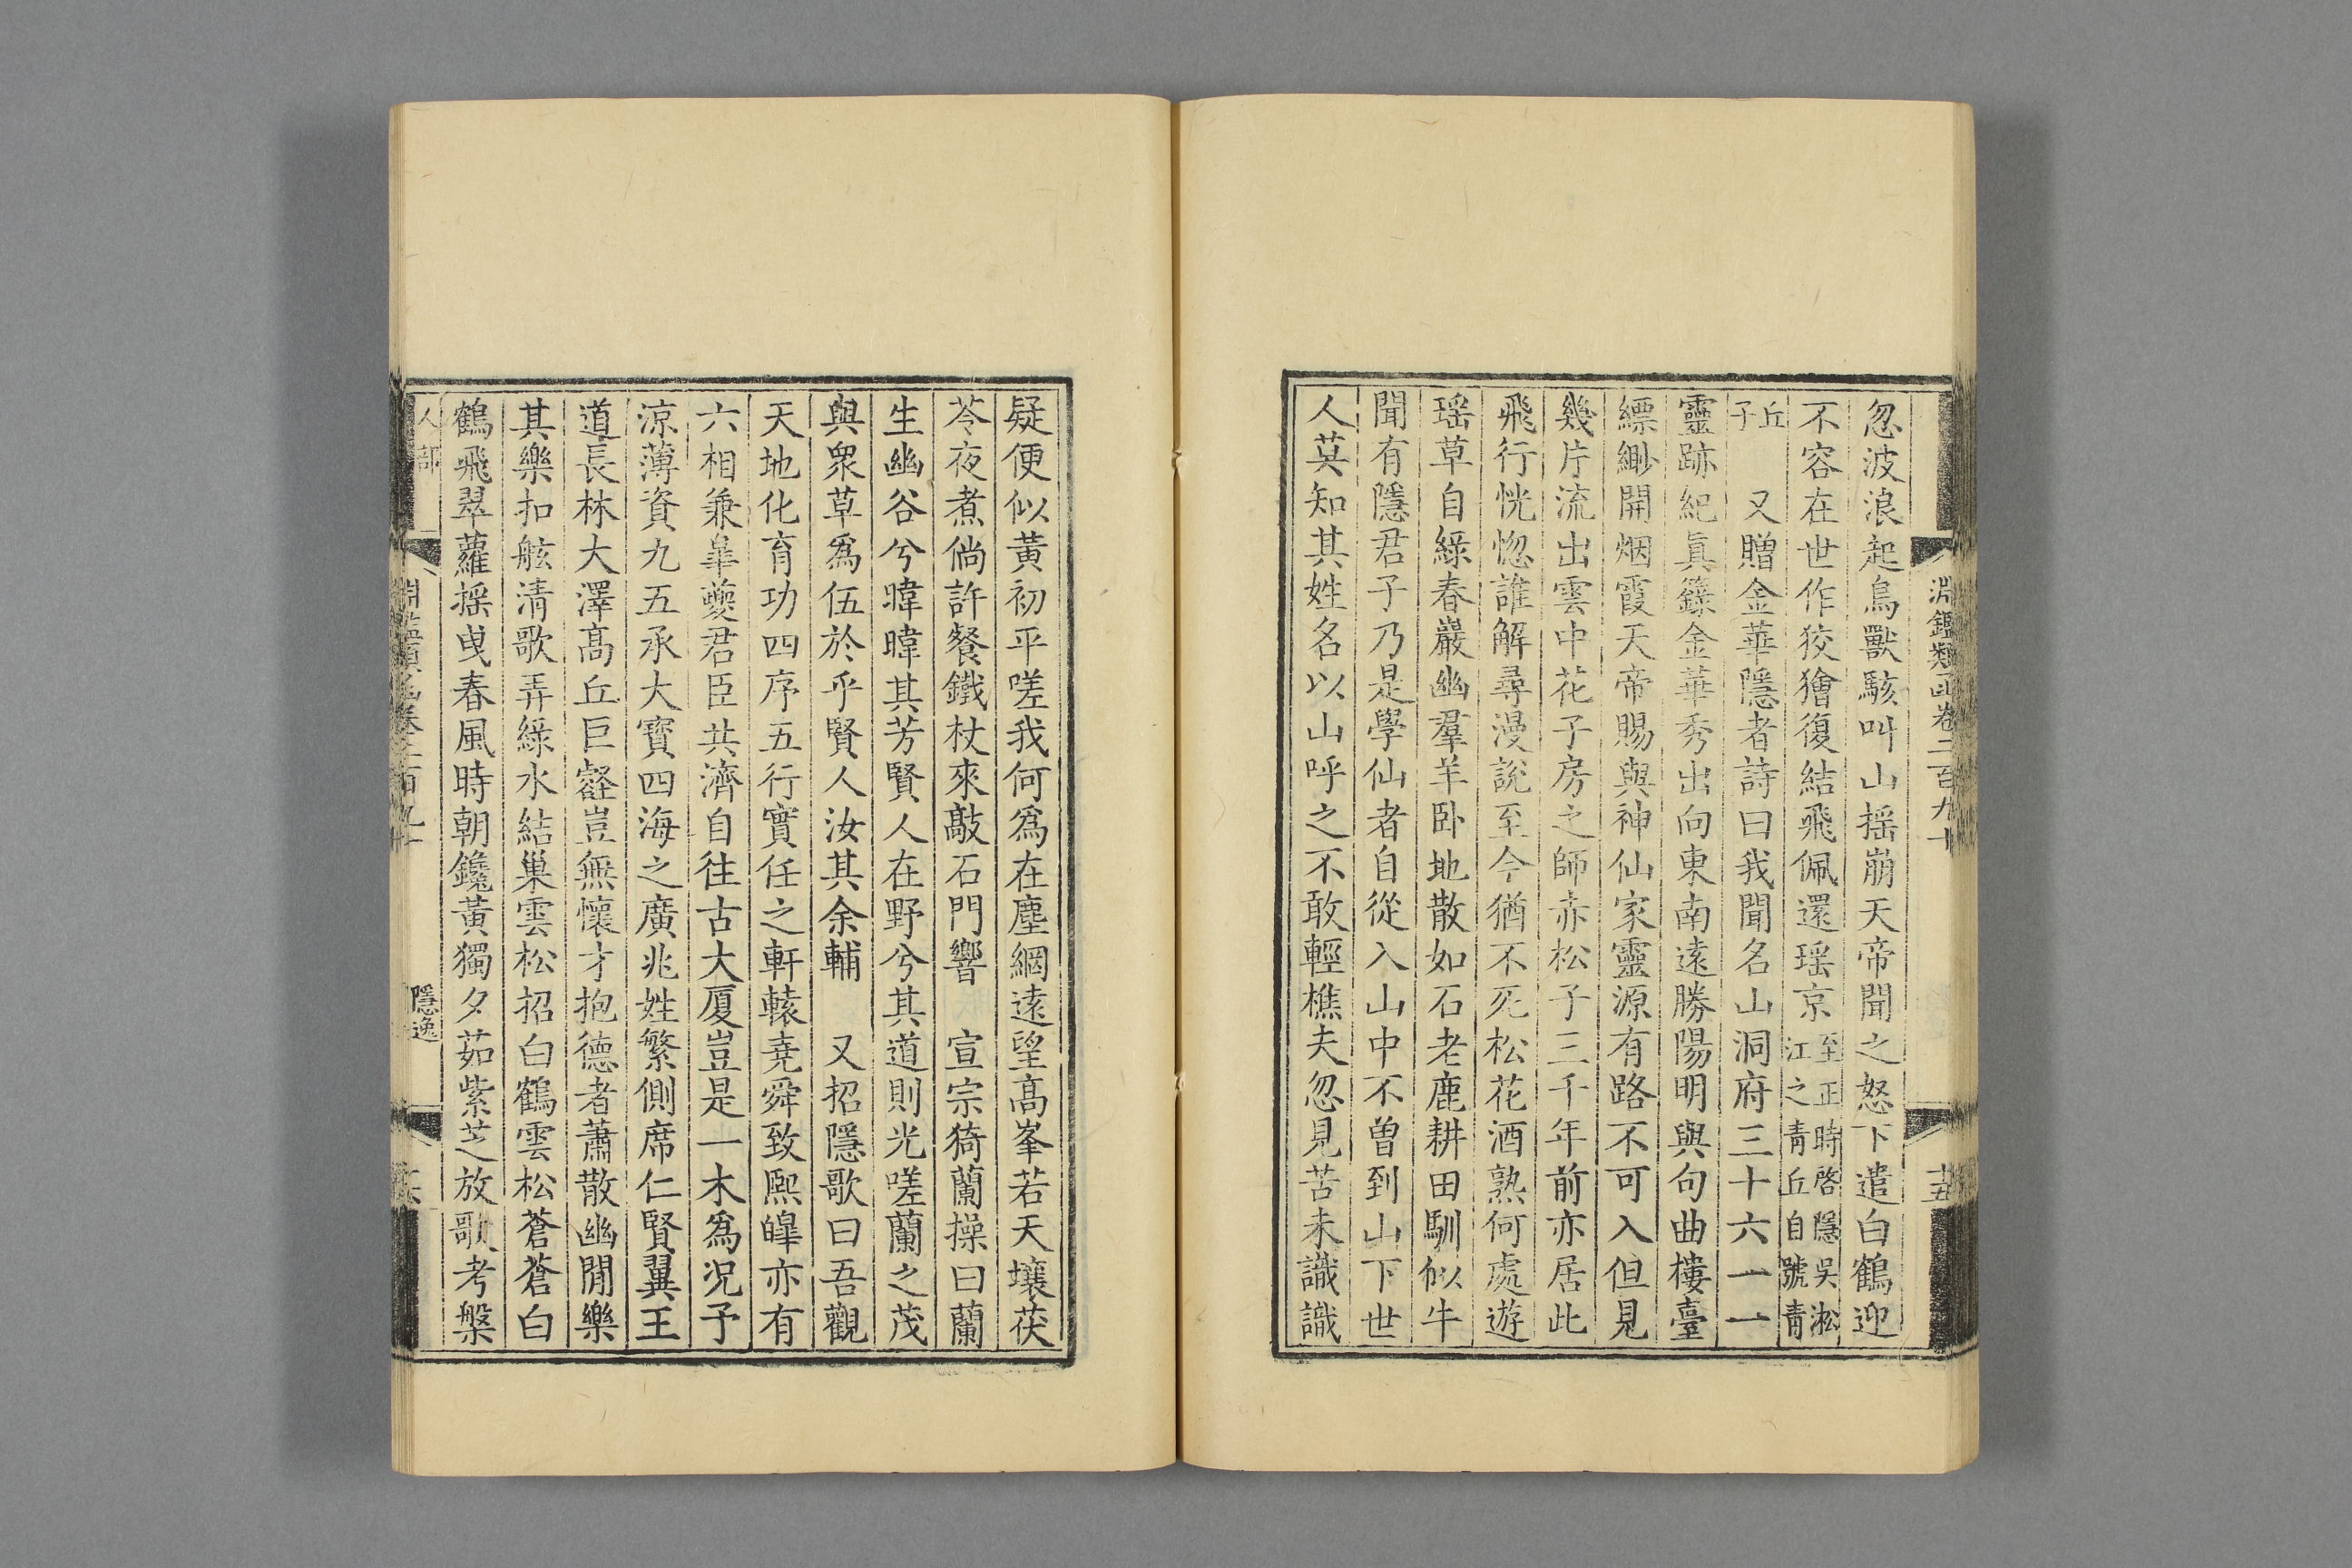 淵鑑類函卷二百九十
十五
忽波浪起鳥獸駭叫山揺崩天帝聞之怒下遣白鶴迎
不容在世作狡獪復結飛佩還瑶京至正時啓隱吳淞江之青丘自號青
丘子　又贈金華隱者詩曰我聞名山洞府三十六一一
靈跡紀眞籙金華秀出向東南遠勝陽明與句曲樓臺
縹緲開烟霞天帝賜與神仙家靈源有路不可入但見
幾片流出雲中花子房之師赤松子三千年前亦居此
飛行恍惚誰解尋漫說至今猶不死松花酒熟何處遊
瑶草自綠春巖幽羣羊卧地散如石老鹿耕田馴似牛
聞有隱君子乃是學仙者自從入山中不曽到山下世
人莫知其姓名以山呼之不敢輕樵夫忽見苦未識識
疑便似黃初平嗟我何爲在塵網遠望髙峯若天壤茯
苓夜煮倘許餐鐵杖來敲石門響　宣宗猗蘭操曰蘭
生幽谷兮暐暐其芳賢人在野兮其道則光嗟蘭之茂
與衆草爲伍於乎賢人汝其余輔　又招隱歌曰吾觀
天地化育功四序五行實任之軒轅堯舜致熙皥亦有
六相兼臯夔君臣共濟自往古大厦豈是一木爲况予
涼薄資九五承大寳四海之廣兆姓繁側席仁賢翼王
道長林大澤髙丘巨壑豈無懷才抱德者蕭散幽閒樂
其樂扣舷清歌弄綠水結巢雲松招白鶴雲松蒼蒼白
鶴飛翠蘿揺曵春風時朝鑱黃獨夕茹紫芝放歌考槃
人部
淵鑑類函卷二百九十
隱逸